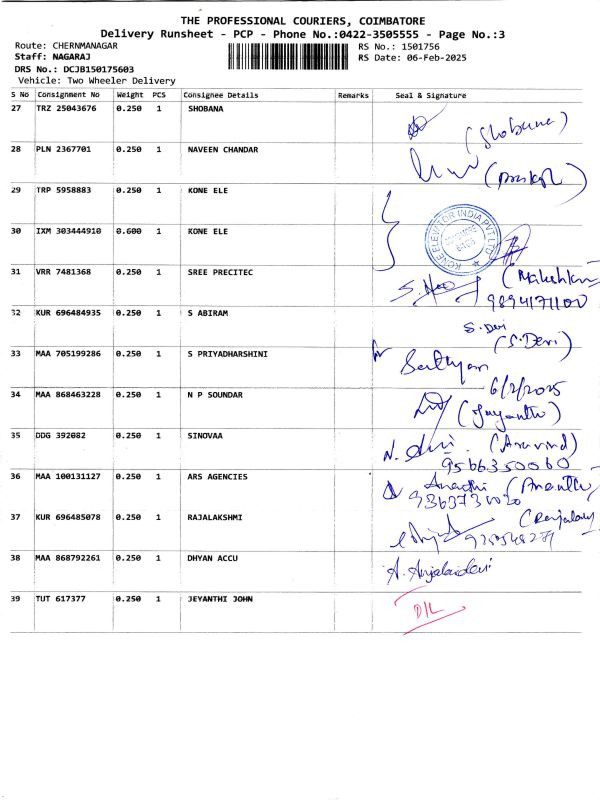 THE PROFESSIONAL COURIERS, COIMBATORE
Delivery Runsheet - PCP - Phone No.:0422-3505555 - Page No.:3
Route: CHERNMANAGAR RS No.: 1501756
Staff: NAGARAJ RS Date: 06-Feb-2025
DRS No.: DCJB150175603
Vehicle: Two Wheeler Delivery
S No Consignment No Weight PCS Consignee Details Remarks Seal & Signature
27 TRZ 25043676 0.250 1 SHOBANA
(Shobana)
28 PLN 2367701 0.250 1 NAVEEN CHANDAR
29 TRP 5958883 0.250 1 KONE ELE
KONE ELEVATOR INDIA PVT LTD
30 IXM 303444910 0.600 1 KONE ELE
31 VRR 7481368 0.250 1 SREE PRECITEC
9894171100
32 KUR 696484935 0.250 1 S ABIRAM
S.Devi (S.Devi)
33 MAA 705199286 0.250 1 S PRIYADHARSHINI
6/2/2025
34 MAA 868463228 0.250 1 N P SOUNDAR
(Jayanthi)
35 DDG 392082 0.250 1 SINOVAA
(Aravind)
9566350060
36 MAA 100131127 0.250 1 ARS AGENCIES
37 KUR 696485078 0.250 1 RAJALAKSHMI
38 MAA 868792261 0.250 1 DHYAN ACCU
A. Anjalaidevi
39 TUT 617377 0.250 1 JEYANTHI JOHN
D/L